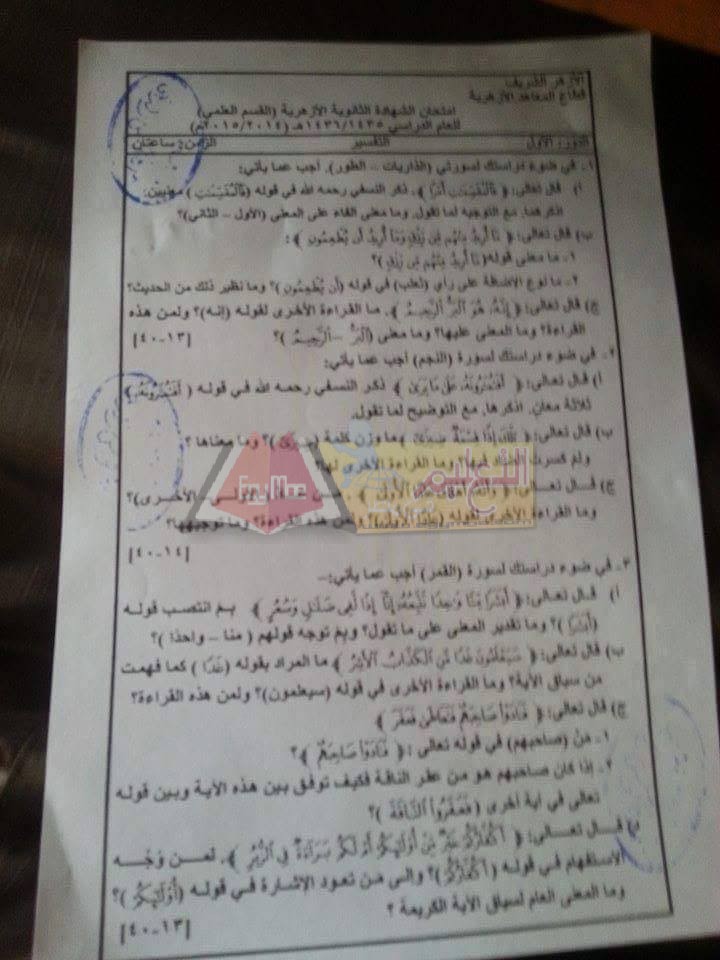 الأزهر الشريف
قطاع المعاهد الأزهرية
امتحان الشهادة الثانوية الأزهرية (القسم العلمي)
للعام الدراسي ١٤٣٦/١٤٣٥هـ (٢٠١٥/٢٠١٤م)
الدور: الأول التفسير الزمن: ساعتان
١ـ في ضوء دراستك لسورتي (الذاريات – الطور)، أجب عما يأتي:
أ) قال تعالى: ﴿ فَالْمُقَسِّمَاتِ أَمْرًا ﴾، ذكر النسفي رحمه الله في قوله (فَالْمُقَسِّمَاتِ) معنيين،
اذكرهما، مع التوجيه لما تقول، وما معنى الفاء على المعنى (الأول – الثاني)؟
ب) قال تعالى: ﴿ مَا أُرِيدُ مِنْهُم مِّن رِّزْقٍ وَمَا أُرِيدُ أَن يُطْعِمُونِ ﴾:
١ـ ما معنى قوله (مَا أُرِيدُ مِنْهُم مِّن رِّزْقٍ)؟
٢ـ ما نوع الإضافة على رأي (ثعلب) في قوله (أَن يُطْعِمُونِ)؟ وما نظير ذلك من الحديث؟
ج) قال تعالى: ﴿ إِنَّهُ هُوَ الْبَرُّ الرَّحِيمُ ﴾، ما القراءة الأخرى لقوله (إنه)؟ ولمن هذه
القراءة؟ وما المعنى عليها؟ وما معنى (الْبَرُّ – الرَّحِيمُ)؟ [١٣ـ٤٠]
٢ـ في ضوء دراستك لسورة (النجم) أجب عما يأتي:
أ) قال تعالى: ﴿ أَفَتُمَارُونَهُ عَلَى مَا يَرَى ﴾ ذكر النسفي رحمه الله في قوله ﴿ أَفَتُمَارُونَهُ ﴾
ثلاثة معان، اذكرها، مع التوضيح لما تقول.
ب) قال تعالى: ﴿ تِلْكَ إِذًا قِسْمَةٌ ضِيزَى ﴾ ما وزن كلمة (ضِيزَى)؟ وما معناها؟
ولم كسرت الضاد فيها؟ وما القراءة الأخرى لها؟
ج) قال تعالى: ﴿ وَأَنَّهُ أَهْلَكَ عَادًا الْأُولَى ﴾، من عاد (الأولى – الأخرى)؟
وما القراءة الأخرى لقوله (عَادًا الْأُولَى)؟ ولمن هذه القراءة؟ وما توجيهها؟
[١٤ـ٤٠]
٣ـ في ضوء دراستك لسورة (القمر) أجب عما يأتي:ـ
أ) قال تعالى: ﴿ أَبَشَرًا مِّنَّا وَاحِدًا نَّتَّبِعُهُ إِنَّا إِذًا لَّفِي ضَلَالٍ وَسُعُرٍ ﴾ بم انتصب قوله
(أَبَشَرًا)؟ وما تقدير المعنى على ما تقول؟ وبم توجه قولهم (منا – واحدا)؟
ب) قال تعالى: ﴿ سَيَعْلَمُونَ غَدًا مَّنِ الْكَذَّابُ الْأَشِرُ ﴾ ما المراد بقوله (غَدًا) كما فهمت
من سياق الآية؟ وما القراءة الأخرى في قوله (سيعلمون)؟ ولمن هذه القراءة؟
ج) قال تعالى: ﴿ فَنَادَوْا صَاحِبَهُمْ فَتَعَاطَى فَعَقَرَ ﴾
١ـ من (صاحبهم) في قوله تعالى: ﴿ فَنَادَوْا صَاحِبَهُمْ ﴾؟
٢ـ إذا كان صاحبهم هو من عقر الناقة فكيف توفق بين هذه الآية وبين قوله
تعالى في آية أخرى ﴿ فَعَقَرُوا النَّاقَةَ ﴾؟
د) قال تعالى: ﴿ أَكُفَّارُكُمْ خَيْرٌ مِّنْ أُولَئِكُمْ أَمْ لَكُم بَرَاءَةٌ فِي الزُّبُرِ ﴾، لمن وُجّه
الاستفهام في قوله (أَكُفَّارُكُمْ)؟ وإلى من تعود الإشارة في قوله (أُولَئِكُمْ)؟
وما المعنى العام لسياق الآية الكريمة؟
[١٣ـ٤٠]